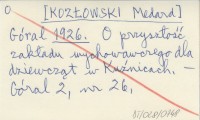 O [KOZŁOWSKI Medard]
Góral 1926. O przyszłość
zakładu wychowawczego dla
dziewcząt w Kuźnicach. –
Góral 2, nr 26,